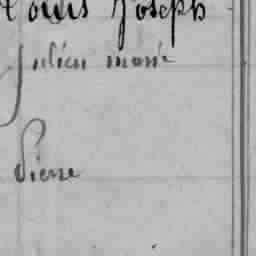 Louis Joseph
Julien marie
Pierre